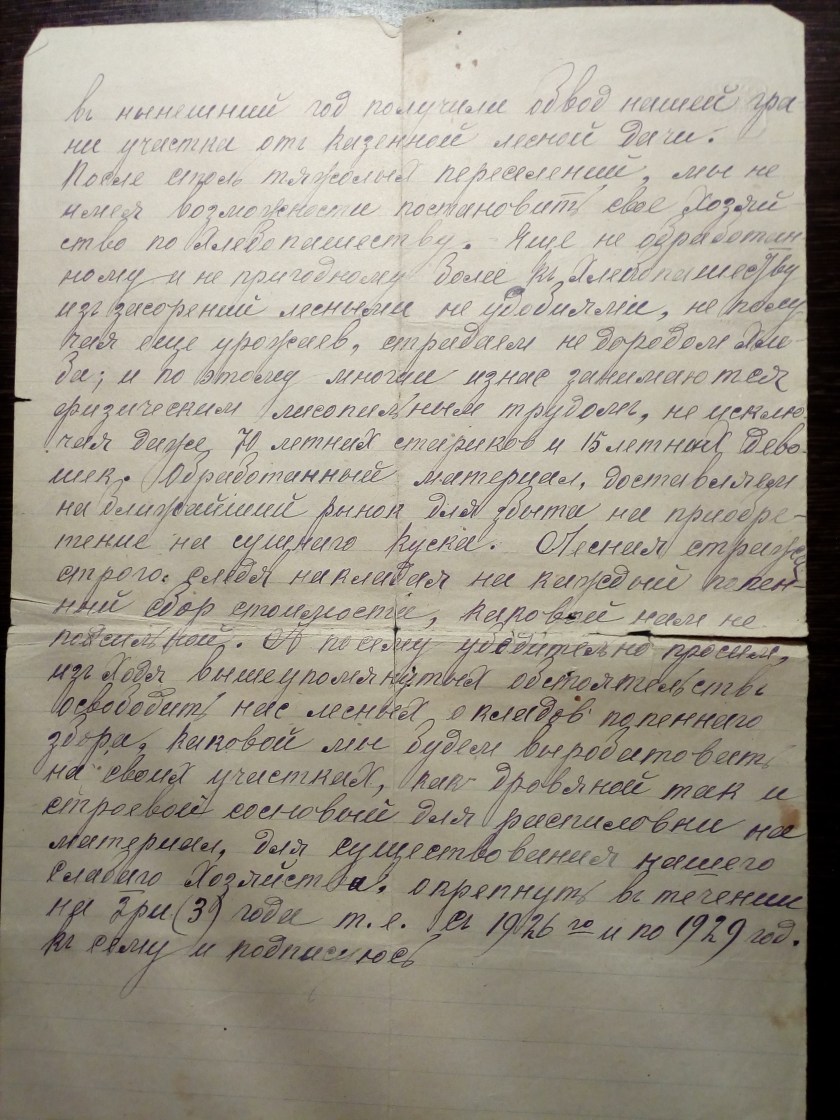 въ нынешний год получили обвод нашей гра
ни участка отъ казенной лесной дачи.
После столь тяжолых переселений, мы не
имея возможности постановить свое хозяй
ство по хлебопашеству. Еще не обработан
ному и не пригодному более къ хлебопашеству
изъ засорений лесными не удобиями, не полу
чая еще урожаев, страдаем не дородом хле-
ба; и по этому многии изнас занимаются
физическим лисопильным трудомъ, не исклю
чая даже 70 летних стариков и 15 летних дево-
шек. Обработанный материал, доставляем
на ближайший рынок для збыта на приобре-
тение на сущнаго куска. Лесная стража
строго следя накладая на каждый попен-
ний сбор стоимости, каковой нам не
посильной. А по сему убедительно просим,
изъ ходя вышеупомянутых обстоятельствъ
освободить нас лесных окладов попеннаго
збора, каковой мы будем выробатовать
на своих участках, как дровяной так и
строевой сосновый для распиловки на
материал, для существования нашего
слабаго хозяйства. опрепнуть въ течении
на Зри (3) года т.е. съ 1926 го и по 1929 год.
къ сему и подписуюсь